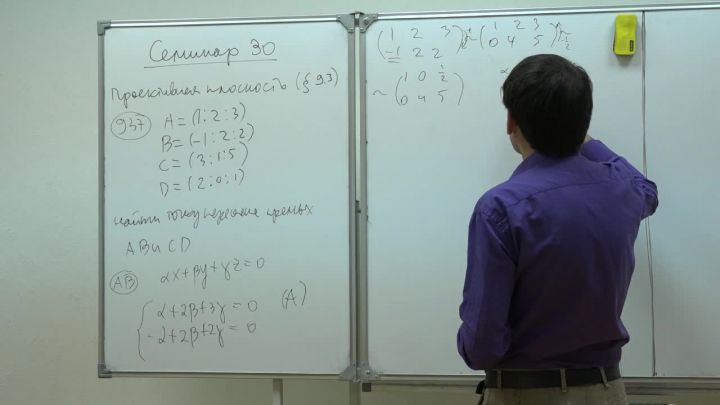 Семинар 30
Проективная плоскость (§ 9.3)
937 A = (1:2:3)
B = (-1:2:2)
C = (3:1:5)
D = (2:0:1)
найти точку пересечения прямых
AB и CD
AB αx + βy + γz = 0
α + 2β + 3γ = 0 (A)
-α + 2β + 2γ = 0
( 1 2 3
-1 2 2 ) ~ ( 1 2 3
0 4 5 )
~ ( 1 0 1/2
0 4 5 )